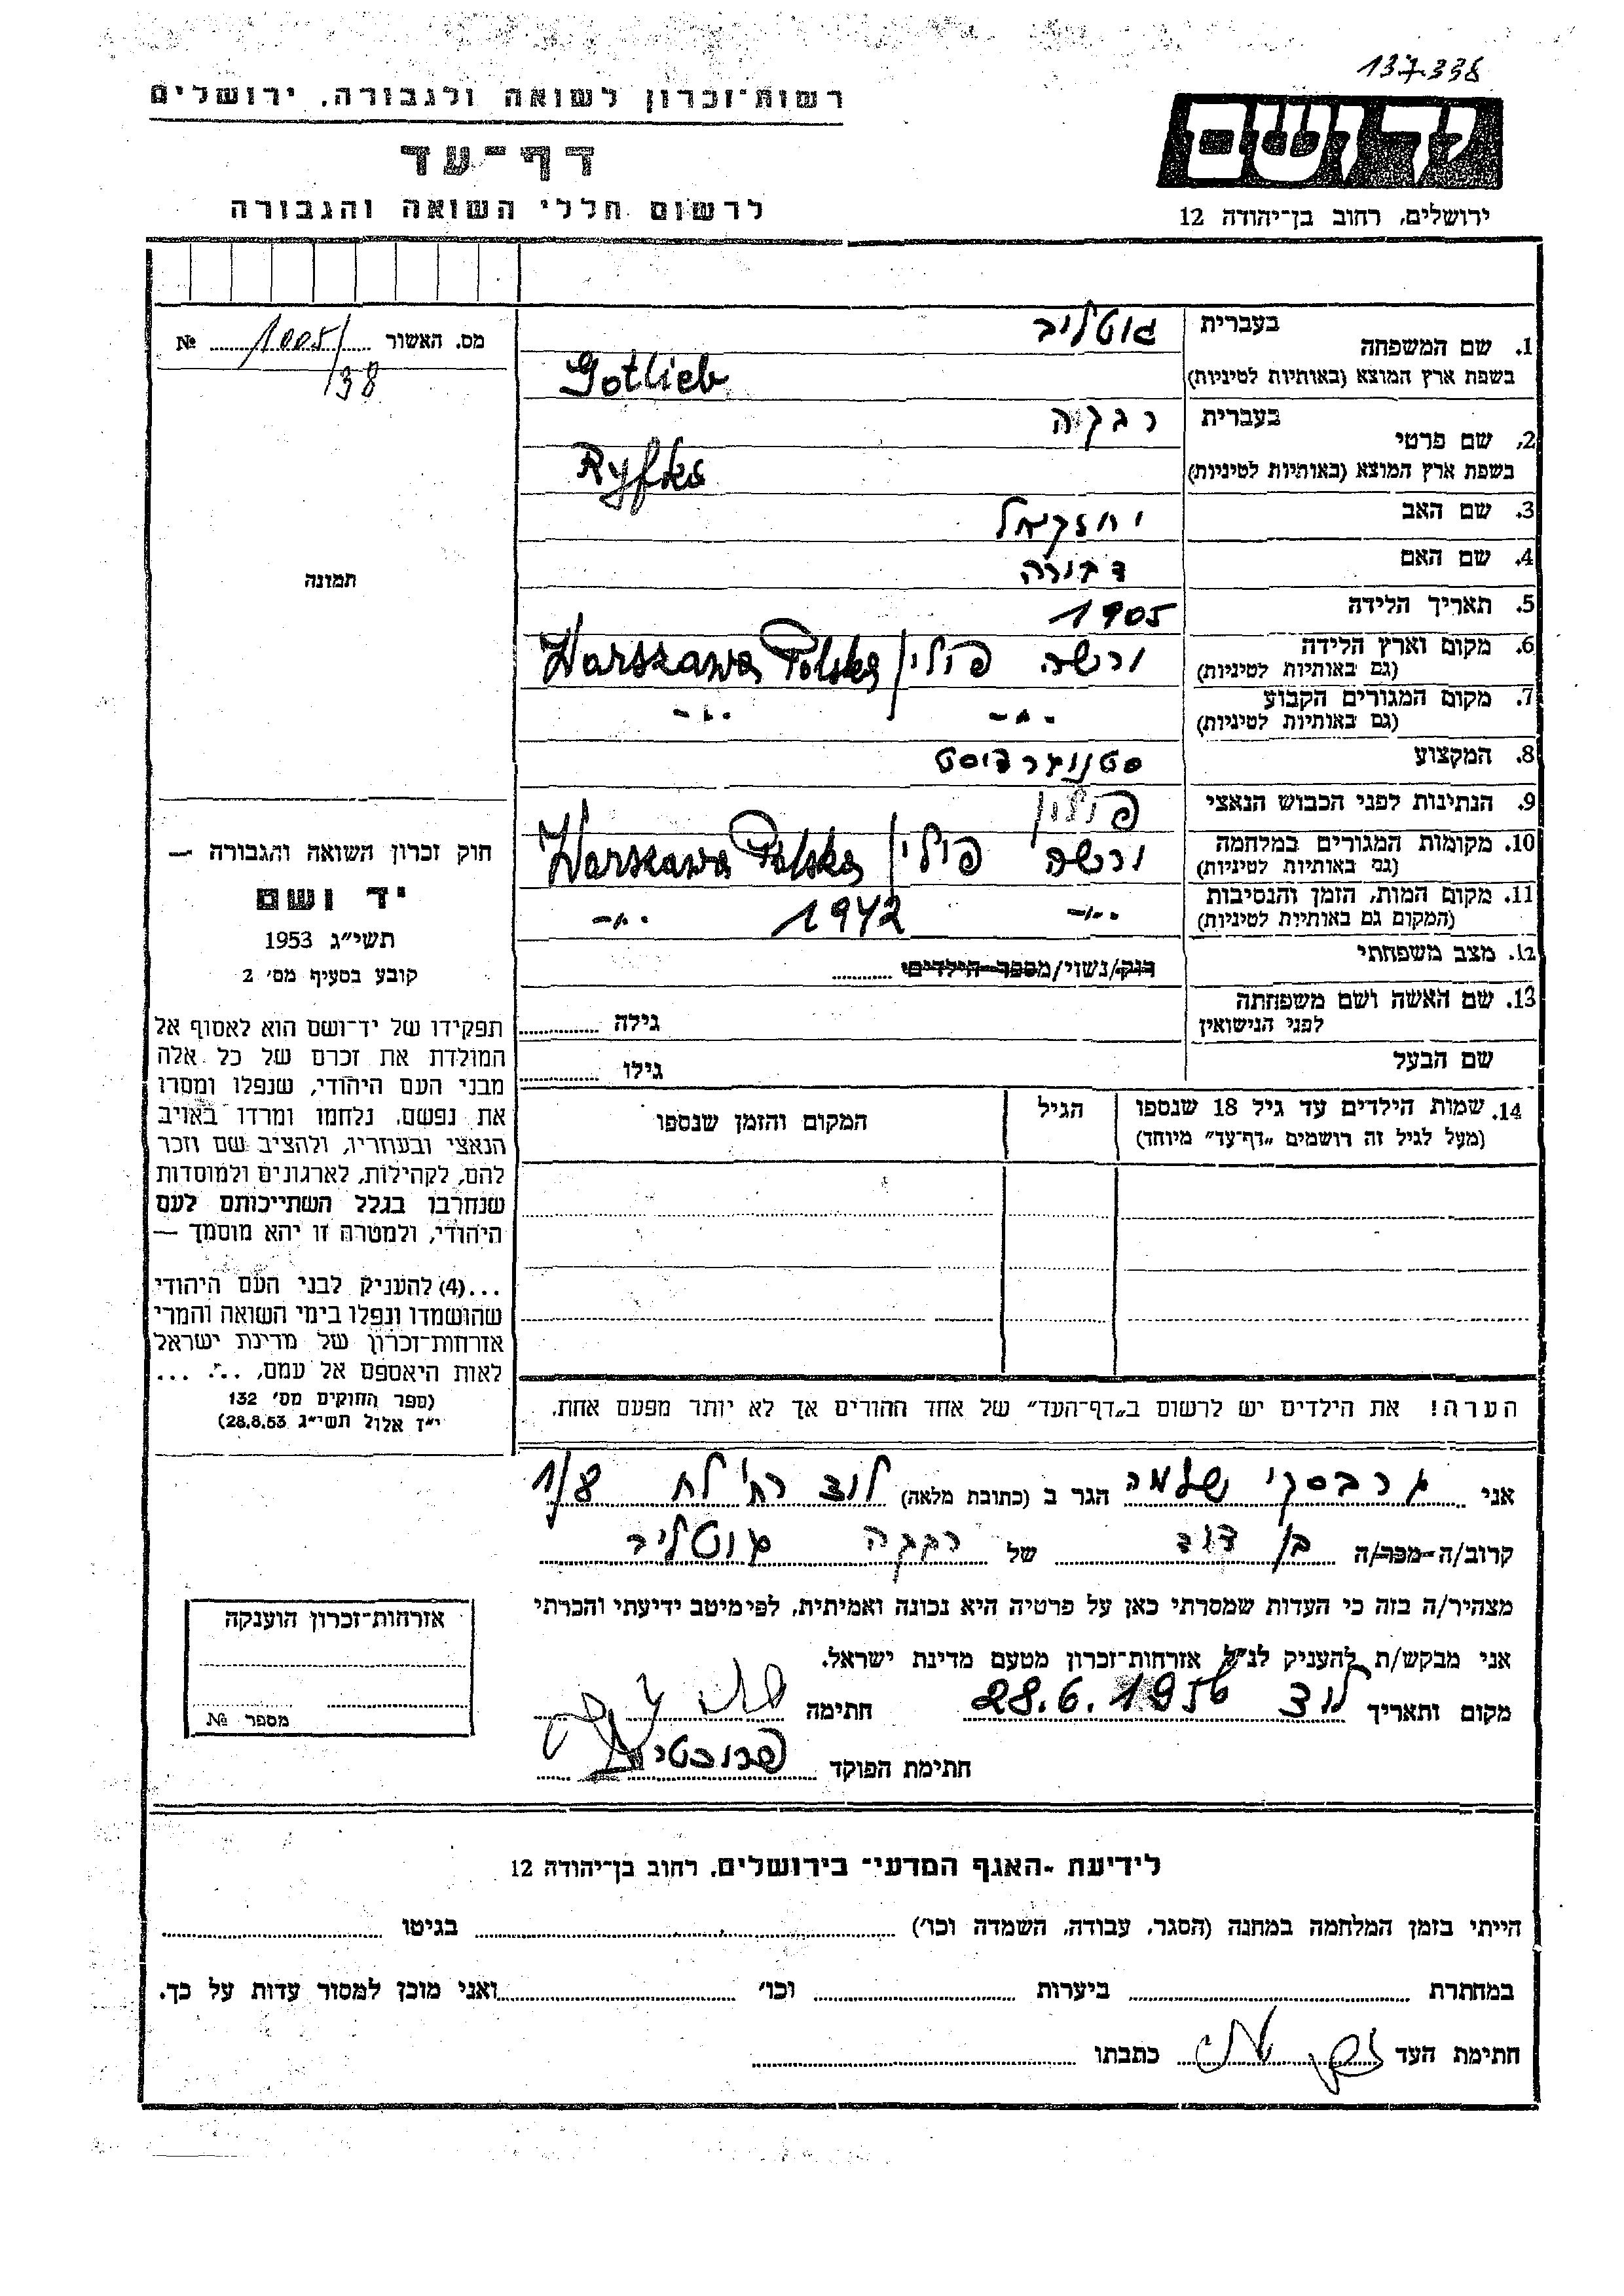 137.338
ידושם
רשות־זכרון לשואה ולגבורה, ירושלים
דף־עד
לרשום חללי השואה והגבורה
ירושלים, רחוב בן־יהודה 12
מס. האשור 1005/38 №
תמונה
חוק זכרון השואה והגבורה —
יד ושם
תשי״ג 1953
קובע בסעיף מס׳ 2
תפקידו של יד־ושם הוא לאסוף אל
המולדת את זכרם של כל אלה
מבני העם היהודי, שנפלו ומסרו
את נפשם, נלחמו ומרדו באויב
הנאצי ובעוזריו, ולהציב שם וזכר
להם, לקהילות, לארגונים ולמוסדות
שנחרבו בגלל השתייכותם לעם
היהודי, ולמטרה זו יהא מוסמך —
...(4) להעניק לבני העם היהודי
שהושמדו ונפלו בימי השואה והמרי
אזרחות־זכרון של מדינת ישראל
לאות היאספם אל עמם, ... ...
(ספר החוקים מס׳ 132
י״ז אלול תשי״ג 28.8.53)
1. שם המשפחה בעברית גוטליב
בשפת ארץ המוצא (באותיות לטיניות) Gotlieb
2. שם פרטי בעברית רבקה
בשפת ארץ המוצא (באותיות לטיניות) Ryfka
3. שם האב יחזקאל
4. שם האם דבורה
5. תאריך הלידה 1905
6. מקום וארץ הלידה ורשה פולין/ Warszawa Polska
(גם באותיות לטיניות)
7. מקום המגורים הקבוע -"- -"-
(גם באותיות לטיניות)
8. המקצוע סטנוגרפיסט
9. הנתינות לפני הכבוש הנאצי פולין
10. מקומות המגורים במלחמה ורשה פולין/ Warszawa Polska
(גם באותיות לטיניות)
11. מקום המות, הזמן והנסיבות -"- 1942 -"-
(המקום גם באותיות לטיניות)
12. מצב משפחתי רוק/נשוי/מספר הילדים
13. שם האשה ושם משפחתה גילה
לפני הנישואין
שם הבעל גילו
14. שמות הילדים עד גיל 18 שנספו הגיל המקום והזמן שנספו
(מעל לגיל זה רושמים „דף־עד״ מיוחד)
הערה! את הילדים יש לרשום ב„דף־העד״ של אחד ההורים אך לא יותר מפעם אחת.
אני גרבסקי שלמה הגר ב (כתובת מלאה) לוד רח' לח 1/8
קרוב/ה מכר/ה בן דוד של רבקה גוטליב
מצהיר/ה בזה כי העדות שמסרתי כאן על פרטיה היא נכונה ואמיתית, לפי מיטב ידיעתי והכרתי
אני מבקש/ת להעניק לנ״ל אזרחות־זכרון מטעם מדינת ישראל.
מקום ותאריך לוד 28.6.1956 חתימה
חתימת הפוקד
אזרחות־זכרון הוענקה
מספר №
לידיעת ־האגף המדעי־ בירושלים, רחוב בן־יהודה 12
הייתי בזמן המלחמה במחנה (הסגר, עבודה, השמדה וכו׳) בגיטו
במחתרת ביערות וכו׳ ואני מוכן למסור עדות על כך.
חתימת העד כתבתו